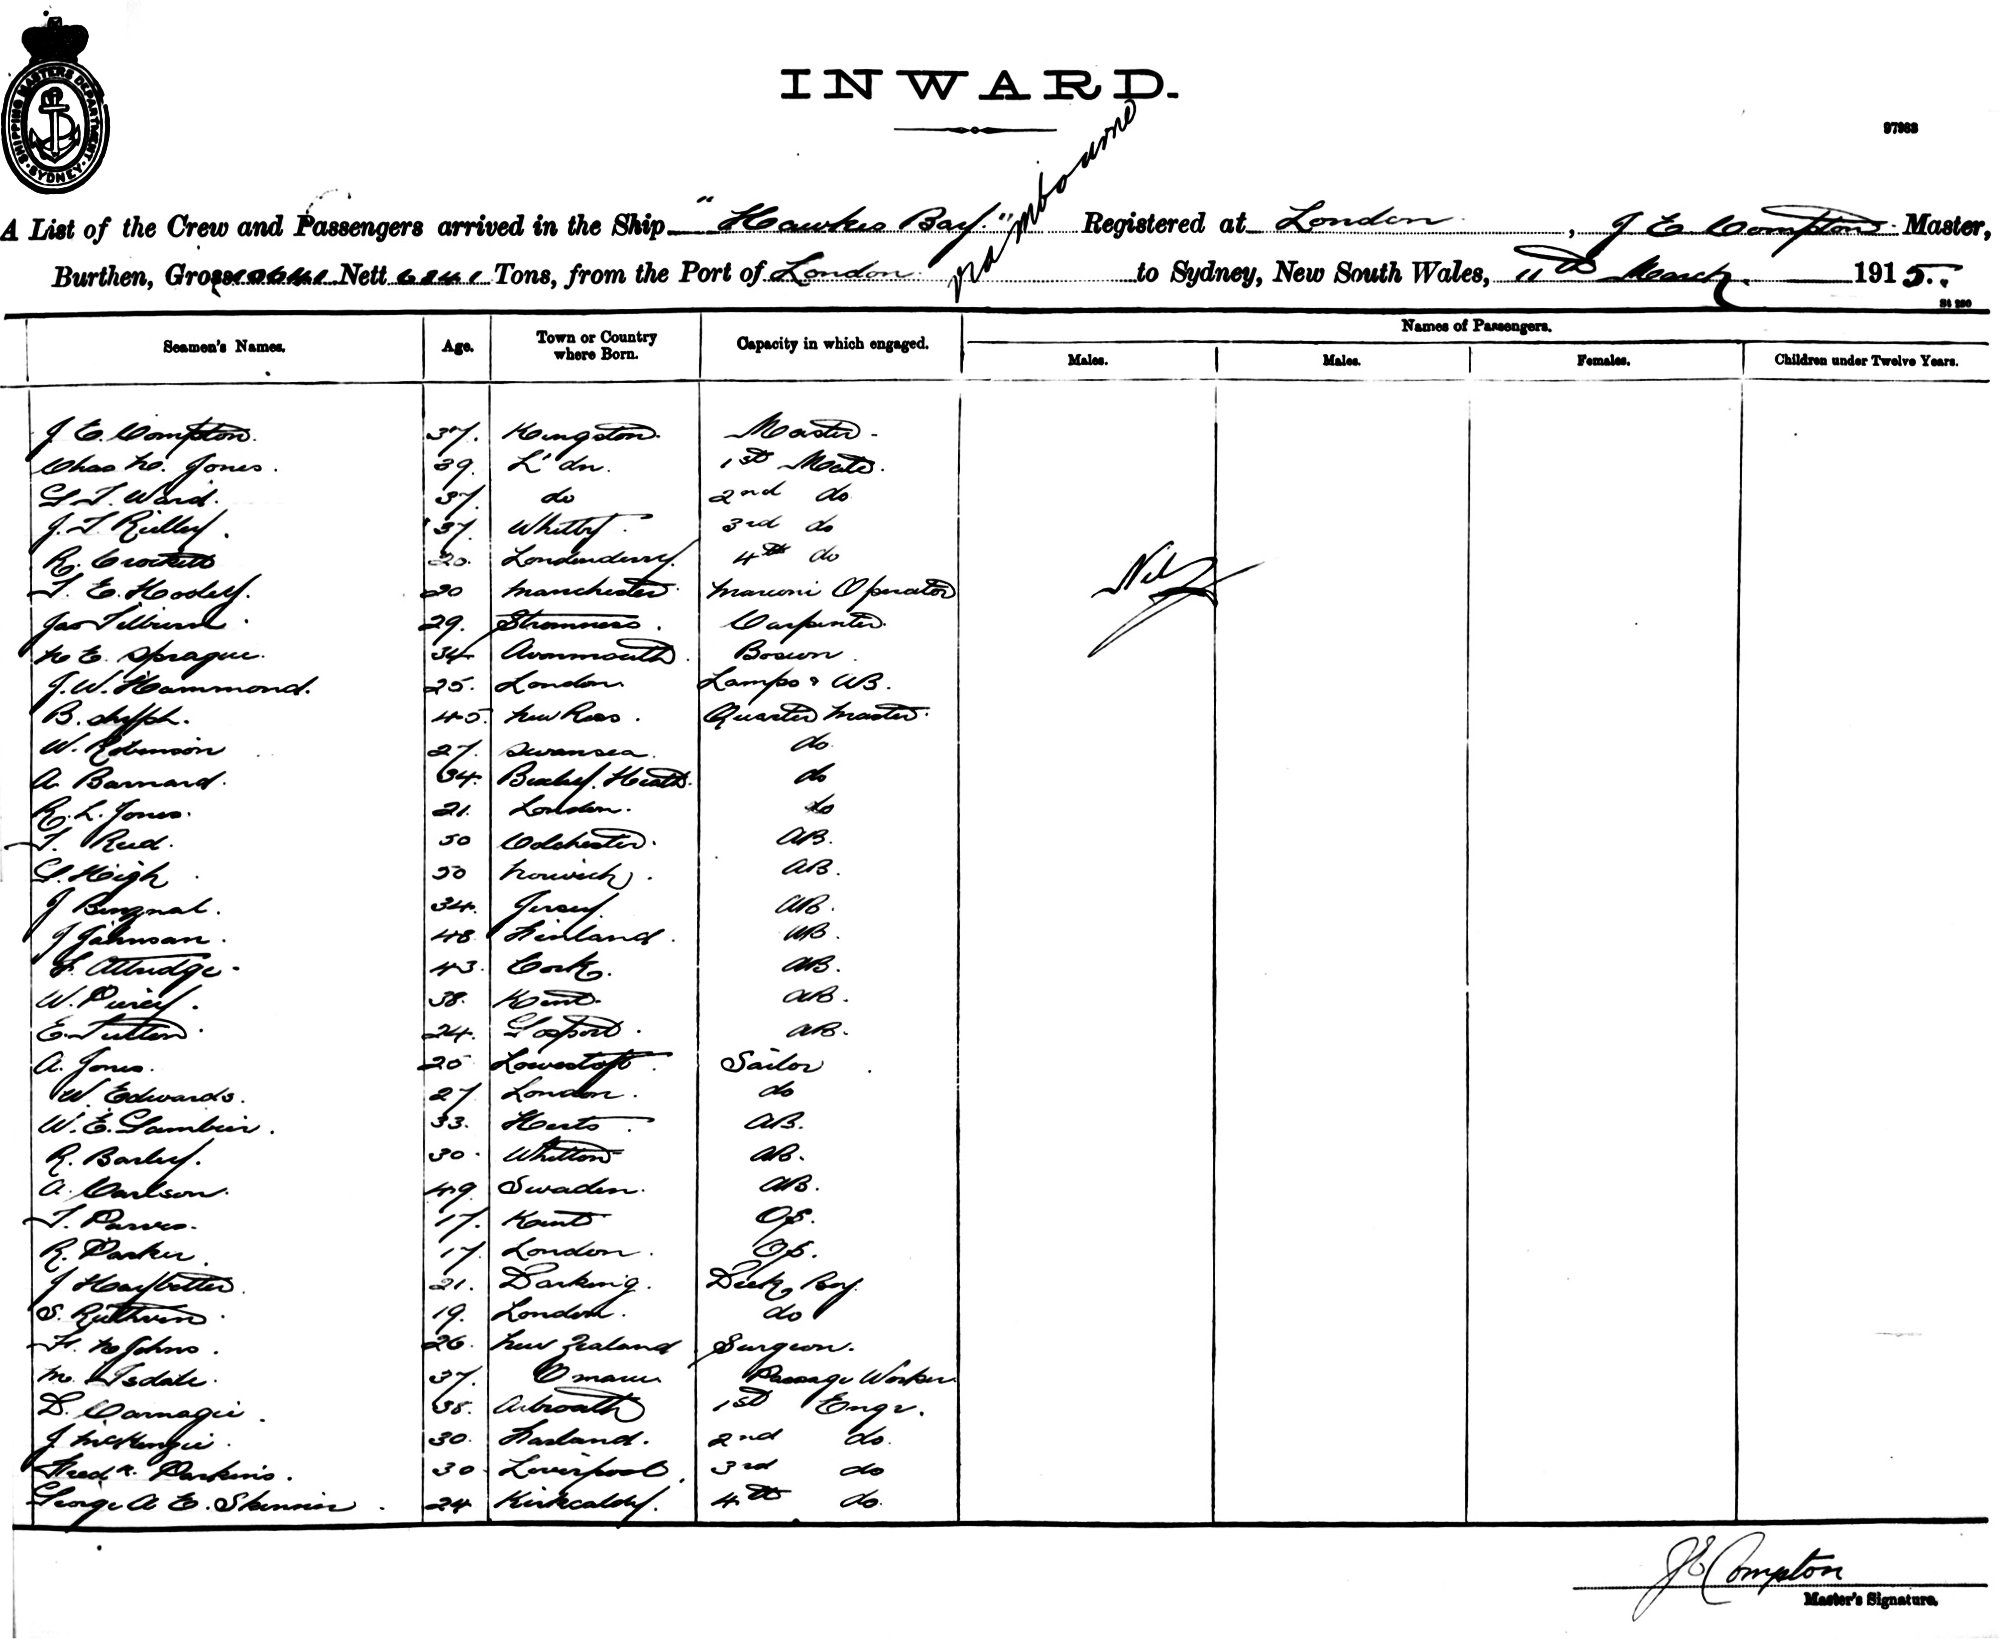 SHIPPING MASTERS DEPARTMENT. SYDNEY.
INWARD.
97963
via Melbourne
A List of the Crew and Passengers arrived in the Ship "Hawkes Bay." Registered at London, J E Compton Master,
Burthen, Gross 10641 Nett 6841 Tons, from the Port of London to Sydney, New South Wales, 11th March 1915.
Seamen's Names. Age. Town or Country where Born. Capacity in which engaged. Names of Passengers.
Males. Males. Females. Children under Twelve Years.
J E. Compton. 37. Kingston. Master.
Chas H. Jones. 39. L'dn. 1st Mate.
G T. Ward. 37. do 2nd do
J. T. Rielley. 37. Whitby. 3rd do
R. Crockett 20. Londonderry. 4th do
T. E. Hooley. 20 Manchester. Marconi Operator
Jas 29. Stromness. Carpenter.
H E. Sprague. 34 Avonmouth. Bosun.
J. W. Hammond. 25. London. Lamps & AB.
B. 45. New Ross. Quarter Master.
W. Robinson 27. Swansea. do
A. Barnard. 34. Bexley Heath. do
R. L. Jones. 21. London. do
T. Reed. 50 Colchester. AB.
G. High. 50 Norwich. AB.
J 34. Jersey. AB.
J Johnson. 48. Finland. AB.
F. Attridge. 43. Cork. AB.
W. Piercy. 38. Kent. AB.
E. Tutton. 24. Gosport. AB.
A. Jones. 25 Lowestoft. Sailor
W. Edwards. 27 London. do
W. E. Lambier. 33. Herts. AB.
R. Barley. 30. Whitton AB.
A. Carlson. 49. Swaden. AB.
T. Purves. 17. Kent OS.
R. Parker. 17. London. OS.
J Haybetter. 21. Darking. Deck Boy.
S. Ruthven. 19. London. do
H. 26. New Zealand Surgeon.
M. Isdale. 37. Omaru Passage Worker
D. Carnagie. 38. Arbroath 1st Engr.
J McKenzie. 30. 2nd do.
Fredk. Parkins. 30 Liverpool. 3rd do
George A E. Skinner. 24 Kirkcaldy. 4th do.
Nil
J E Compton
Master's Signature.